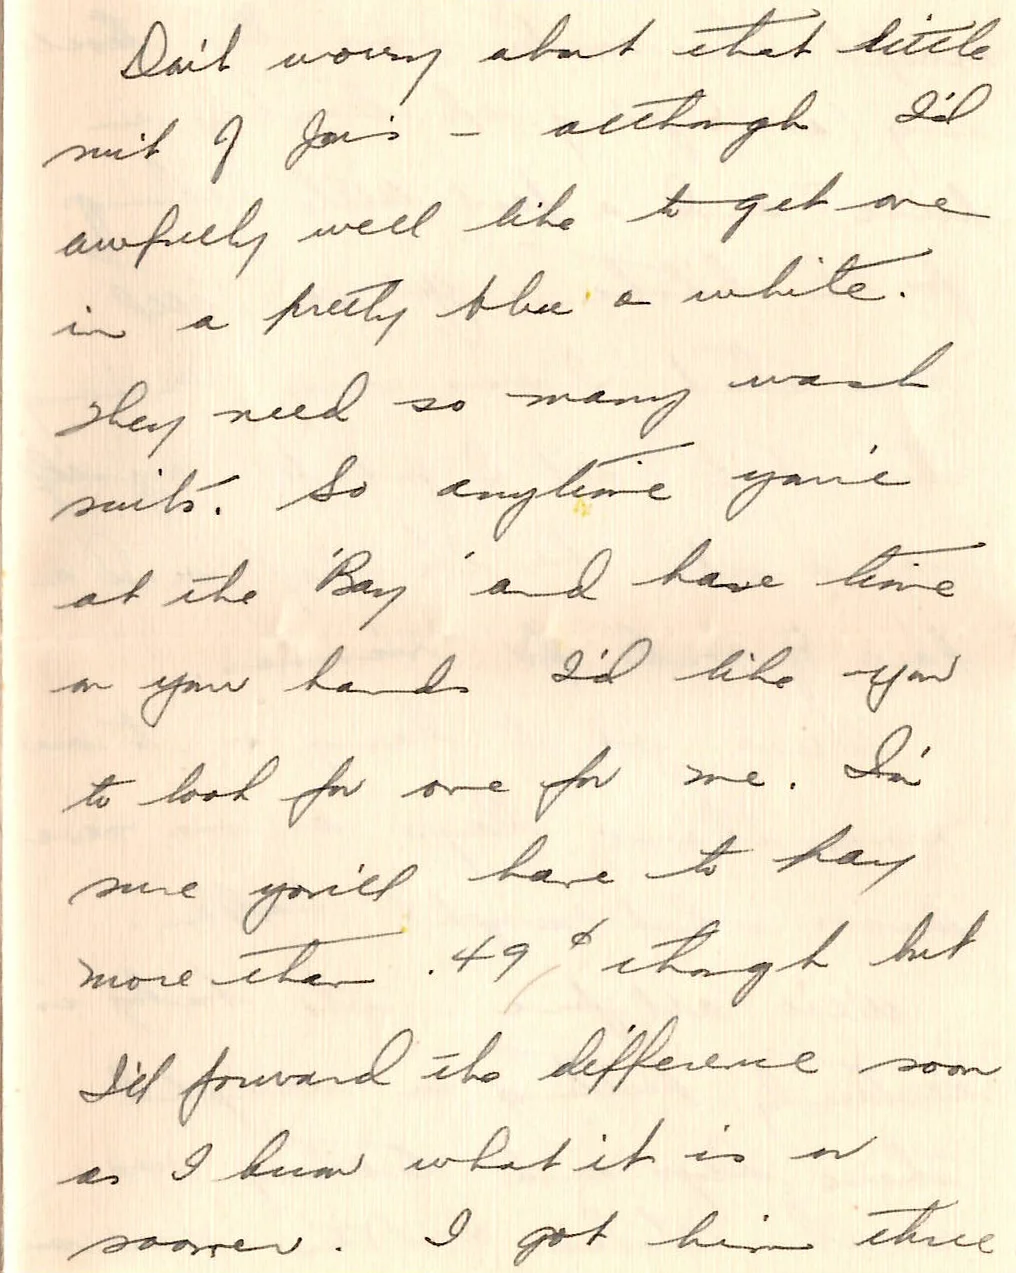 Don't worry about that little
suit of Jon's – although I'd
awfully well like to get one
in a pretty blue or white.
They need so many wash
suits. So anytime you're
at the 'Bay' and have time
on your hands I'd like you
to look for one for me. I'm
sure you'll have to pay
more than .49¢ though but
I'll forward the difference soon
as I know what it is or
sooner. I got him three